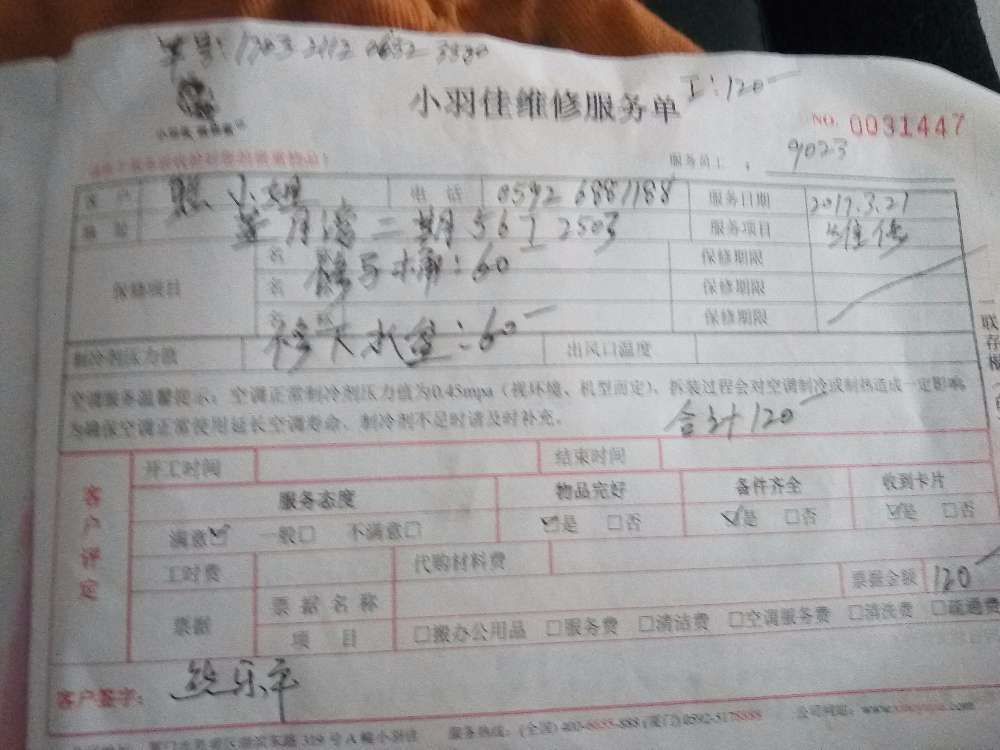 单号: 1703 2112 0632 3380
小羽佳维修服务单
工: 120
NO. 0031447
服务员工: 9023
客户 小姐 电话 0592 6881188 服务日期 2017.3.21
二期56 2503 服务项目 维修
保修项目 名 修马桶: 60 保修期限
名 保修期限
名称 保修期限
修下水盆: 60
制冷剂压力值 出风口温度
空调服务温馨提示: 空调正常制冷剂压力值为0.45mpa (视环境、机型而定), 拆装过程会对空调制冷或制热造成一定影响,
为确保空调正常使用延长空调寿命, 制冷剂不足时请及时补充。
合计120
客户评定
开工时间 结束时间
服务态度 物品完好 备件齐全 收到卡片
满意☑ 一般□ 不满意□ ☑是 □否 ☑是 □否 ☑是 □否
工时费 代购材料费
票据 票据名称 票据金额 120
项目 □搬办公用品 □服务费 □清洁费 □空调服务费 □清洗费 □疏通费
客户签字: 乐平
319号A幢小羽佳 服务热线: (全国) 400-6655-888 (厦门) 0592-5178888 公司网站: www.
一联存根